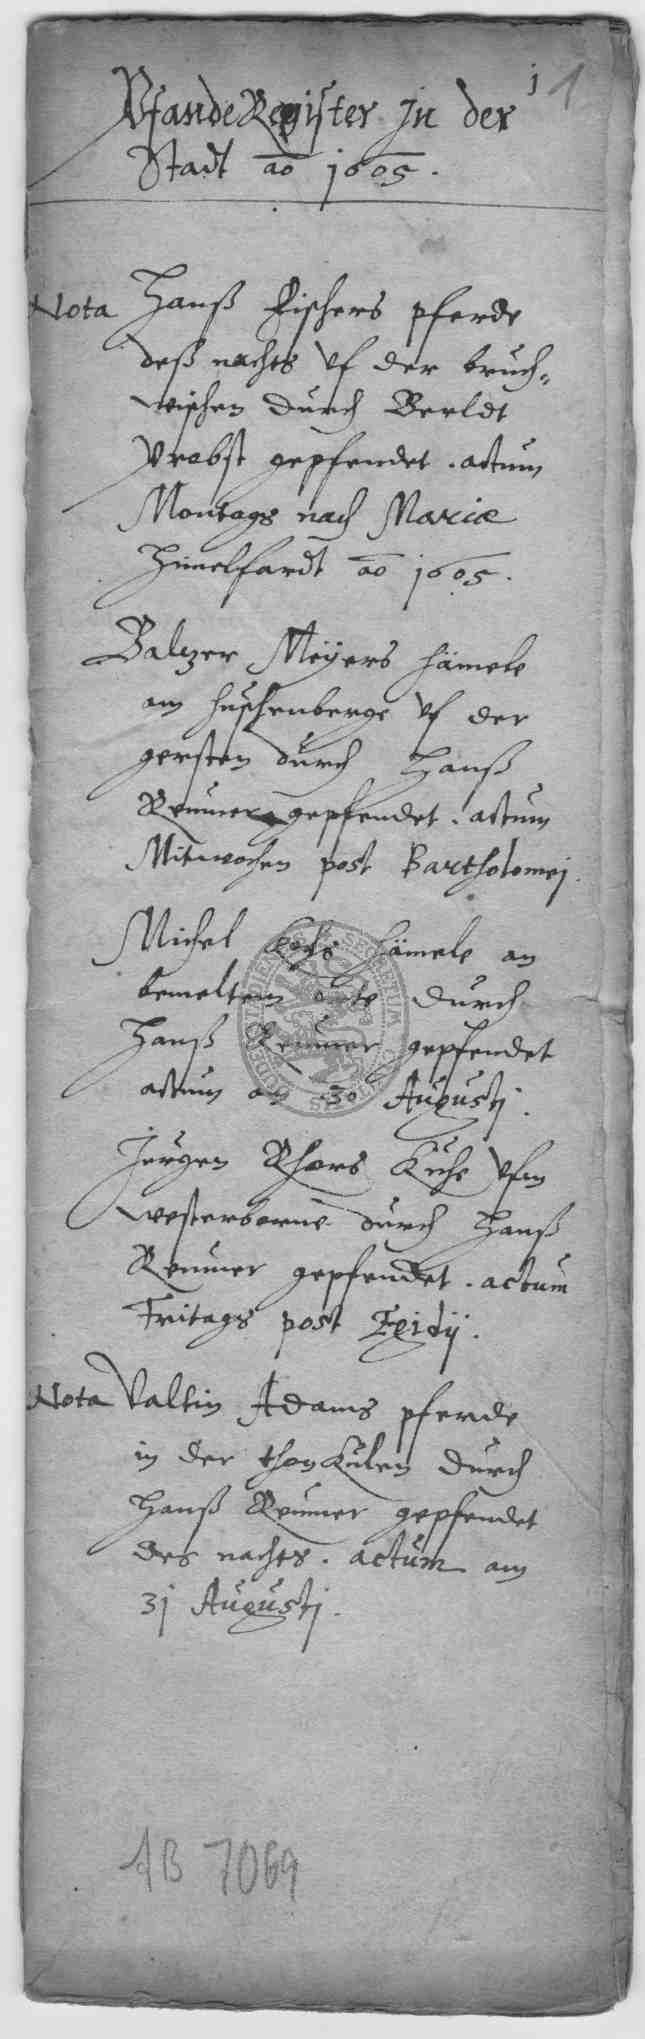 j 1
PfandeRegister in der
Stadt ao 1605.
Nota Hanß Fischers pferde
deß nachts vf der bruch-
wischen durch Berldt
Probst gepfendet . actum
Montags nach Mariæ
Himelfardt ao 1605.
Baltzer Meÿers hämele
am huschenberge vf der
gersten durch Hanß
Renner gepfendet . actum
Mitwochen post Bartholomej.
Michel Kochs hämele an
bemeltem orte durch
Hanß Renner gepfendet
actum am 30 Augustj.
Jurgen Rhors Kuhe vfm
westerborne durch Hanß
Renner gepfendet . actum
Fritags post Egidij.
Nota Valtin Adams pferde
in der thonkulen durch
Hanß Renner gepfendet
des nachts . actum am
3j Augustj.
AB 7069